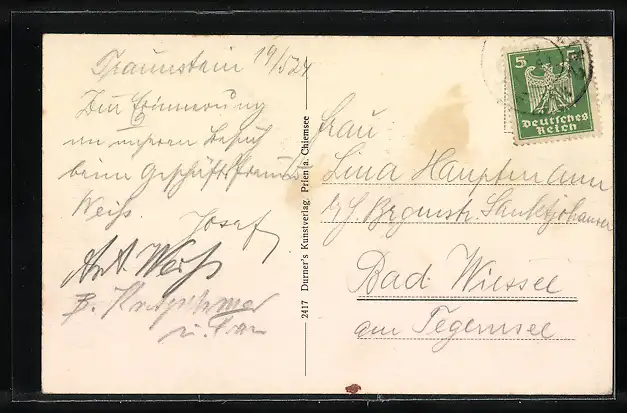 Traunstein 19/5 24
Zur Erinnerung
an unseren Besuch
beim Geschäftsfreund
Weiss.
Josef
Ant. Weiss
B. Kretschmer
u. Frau
2417 Durner's Kunstverlag Prien a. Chiemsee
5 5
Deutsches
Reich
Frau
Lina Hauptmann
Bad Wiessee
am Tegernsee